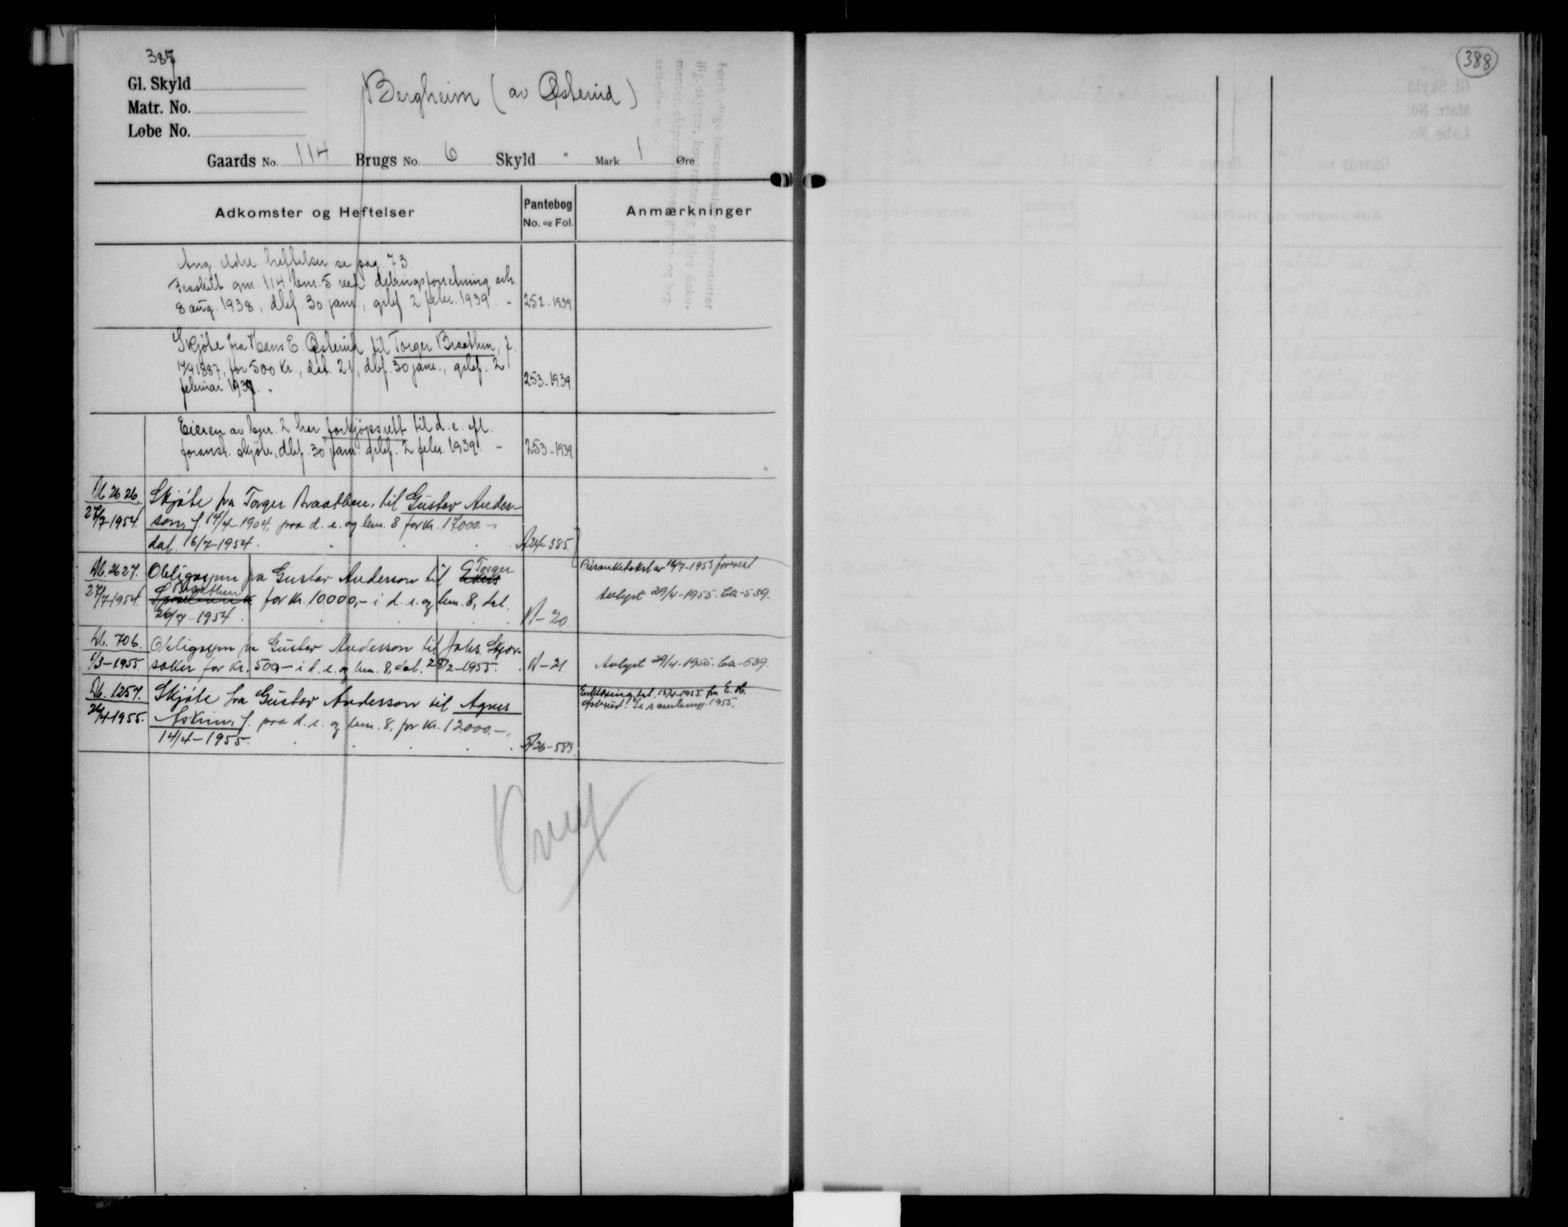 387
Gl. Skyld
Matr. No.
Løbe No.
Bergheim (av Østerud)
Gaards No. 114 Brugs No. 6 Skyld - Mark 1 Øre
388
Adkomster og Heftelser
Pantebog
No. og Fol.
Anmærkninger
Ang. eldre heftelser se pag 73
Fraskilt gnr. 114 bnr. 5 ved delingsforretning avh.
8 aug. 1938, dbf. 30 jan., gebf. 2 febr. 1939 -
252-1939
Skjøte fra Hans E Østerud til Torger Braathen, f.
1887, for 500 kr., dat. 21, dbf. 30 jan., gebf. 2
februar 1939. -
253-1939
Eieren av bnr. 2 har forkjøpsrett til d. e. efl.
foranst. skjøte, dbf. 30 jan. gebf. 2 febr. 1939 -
253-1939
Db. 2626.
27/7-1954.
Skjøte fra Torger Braathen, til Gustav Anders-
son, f. 14/4-1904, paa d. e. og bnr. 8 for kr. 17000.-,
dat. 16/7-1954.
A24-385
Db. 2627.
27/7-1954.
Obligasjon fra Gustav Anderson til Torger
Braathen for kr. 10000,- i d. e. og bnr. 8, dat.
26/7-1954.
A-20
16/7-1953
Avlyst 29/4-1955. Ca-539.
Db. 706.
1/3-1955
Obligasjon fra Gustav Andersson til Johs Skjør-
saker for kr. 500,- i d. e. og bnr. 8, dat. 28/2-1955.
A-21.
Avlyst 29/4-1955. Ca-539
Db. 1257.
29/4-1955.
Skjøte fra Gustav Andersson til Agnes
Askim, f. paa d. e. og bnr. 8, for kr. 12000.-,
14/4-1955.
A26-583
Erklæring dat. 13/4-1955 fra E. H.
Østerud!